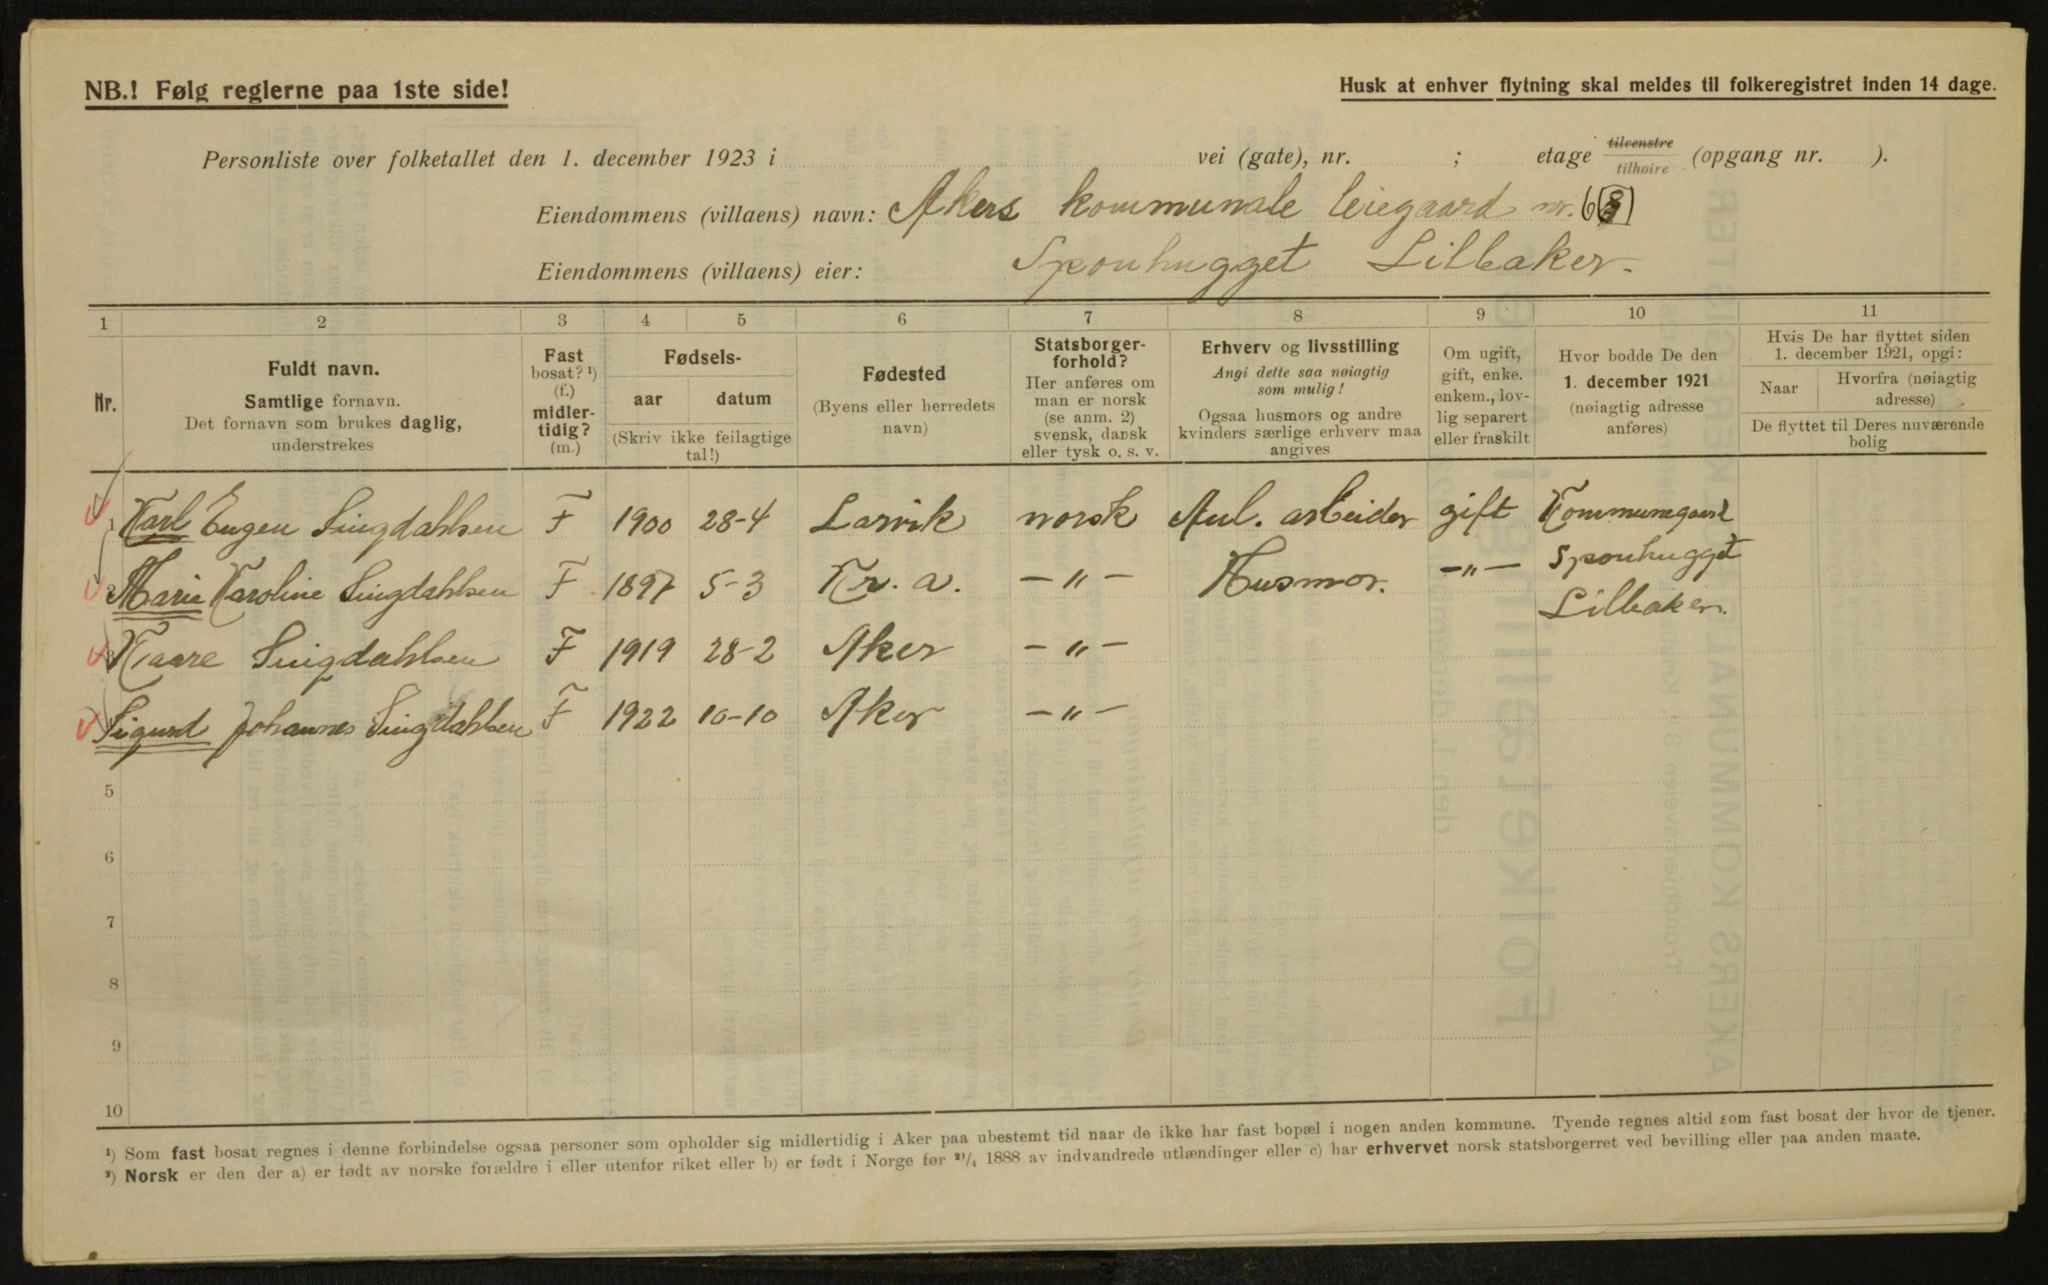 NB.! Følg reglerne paa 1ste side!
Husk at enhver flytning skal meldes til folkeregistret inden 14 dage.
Personliste over folketallet den 1. december 1923 i vei (gate), nr. ; etage tilvenstre / tilhøire (opgang nr. ).
Eiendommens (villaens) navn: Akers kommunale leiegaard nr. 68
Eiendommens (villaens) eier: Sponhugget Lilleaker.
1 2 3 4 5 6 7 8 9 10 11
Nr.
Fuldt navn.
Samtlige fornavn.
Det fornavn som brukes daglig,
understrekes
Fast
bosat? ¹)
(f.)
midler-
tidig?
(m.)
Fødsels-
aar datum
(Skriv ikke feilagtige
tal!)
Fødested
(Byens eller herredets
navn)
Statsborger-
forhold?
Her anføres om
man er norsk
(se anm. 2)
svensk, dansk
eller tysk o. s. v.
Erhverv og livsstilling
Angi dette saa nøiagtig
som mulig!
Ogsaa husmors og andre
kvinders særlige erhverv maa
angives
Om ugift,
gift, enke.
enkem., lov-
lig separert
eller fraskilt
Hvor bodde De den
1. december 1921
(nøiagtig adresse
anføres)
Hvis De har flyttet siden
1. december 1921, opgi:
Naar
Hvorfra (nøiagtig
adresse)
De flyttet til Deres nuværende
bolig
1 Karl Eugen Singdahlsen F 1900 28-4 Larvik norsk Aul. arbeider gift Kommunegaard
Sponhugget
2 Marie Karoline Singdahlsen F 1897 5-3 Kr. a. -"- Husmor. -"-
Lilleaker.
3 Kaare Singdahlsen F 1919 28-2 Aker -"-
Sigurd Johannes Singdahlsen F 1922 10-10 Aker -"-
5
6
7
8
9
10
¹) Som fast bosat regnes i denne forbindelse ogsaa personer som opholder sig midlertidig i Aker paa ubestemt tid naar de ikke har fast bopæl i nogen anden kommune. Tyende regnes altid som fast bosat der hvor de tjener.
²) Norsk er den der a) er født av norske forældre i eller utenfor riket eller b) er født i Norge før ²¹/₄ 1888 av indvandrede utlændinger eller c) har erhvervet norsk statsborgerret ved bevilling eller paa anden maate.